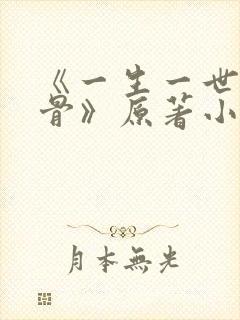 《一生一世
骨》原著小
月本無光